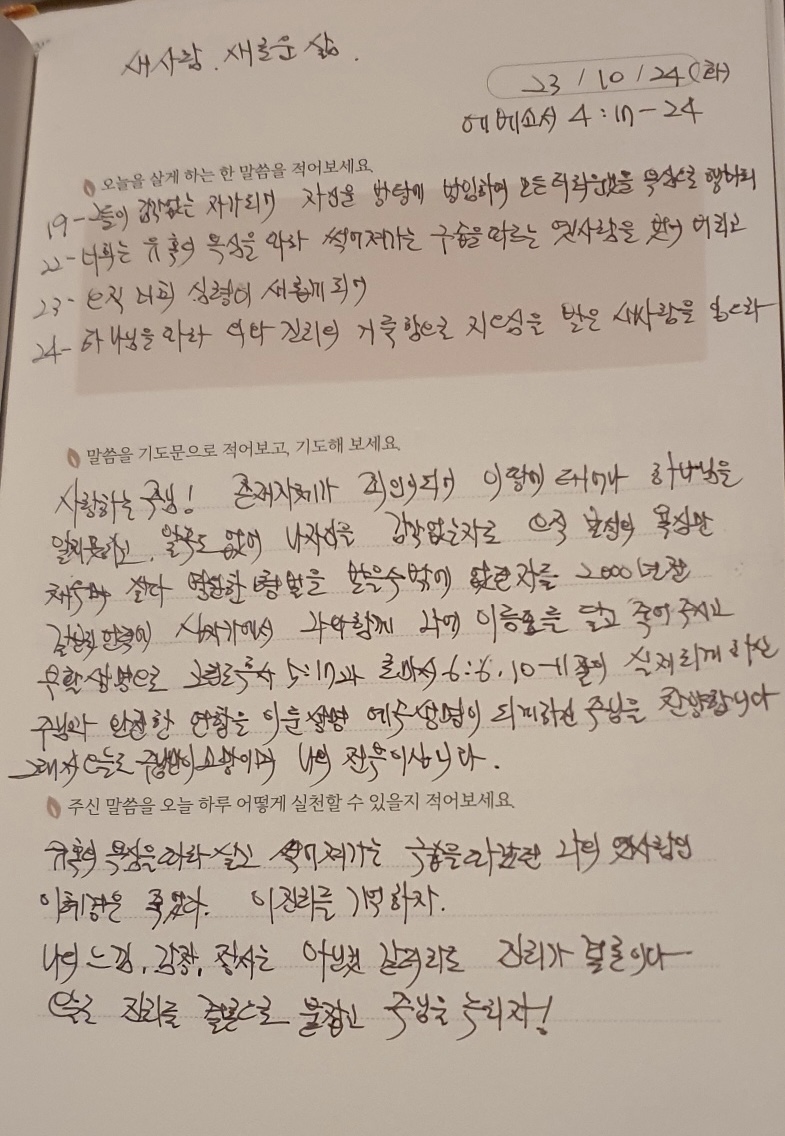 새사람. 새로운 삶.
23 / 10 / 24 (화)
에베소서 4 : 17 - 24
오늘을 살게 하는 한 말씀을 적어보세요.
19 - 그들이 감각없는 자가되어 자신을 방탕에 방임하여 모든 더러운것을 욕심으로 행하되
22 - 너희는 유혹의 욕심을 따라 썩어져가는 구습을 따르는 옛사람을 벗어 버리고
23 - 오직 너희 심령이 새롭게 되어
24 - 하나님을 따라 의와 진리의 거룩함으로 지으심을 받은 새사람을 입으라
말씀을 기도문으로 적어보고, 기도해 보세요.
사랑하는 주님! 존재자체가 죄인이되어 이땅에 태어나 하나님을
알지못하고, 알수도 없어 나자신을 감각없는자로 오직 본성의 욕심만
채우며 살다 영원한 형벌을 받을수밖에 없는 자를 2000년전
십자가에서 나와함께 나에 이름표를 달고 죽어 주시고
부활생명으로 5:17과 로마서 6:6, 10-11 절의 실제되게 하신
주님과 완전한 연합을 이룬 생명 예수생명이 되게하신 주님을 찬양합니다
그래서 오늘도 주님만이 소망이며 나의 전부이십니다.
주신 말씀을 오늘 하루 어떻게 실천할 수 있을지 적어보세요.
유혹의 욕심을 따라 살고 썩어져가는 구습을 따랐던 나의 옛사람인
죽었다. 이진리를 기억하자.
나의 느낌, 감정, 정서는 아닐것 같더라도 진리가 결론이다
오늘도 진리를 결론으로 붙잡고 주님을 누리자!